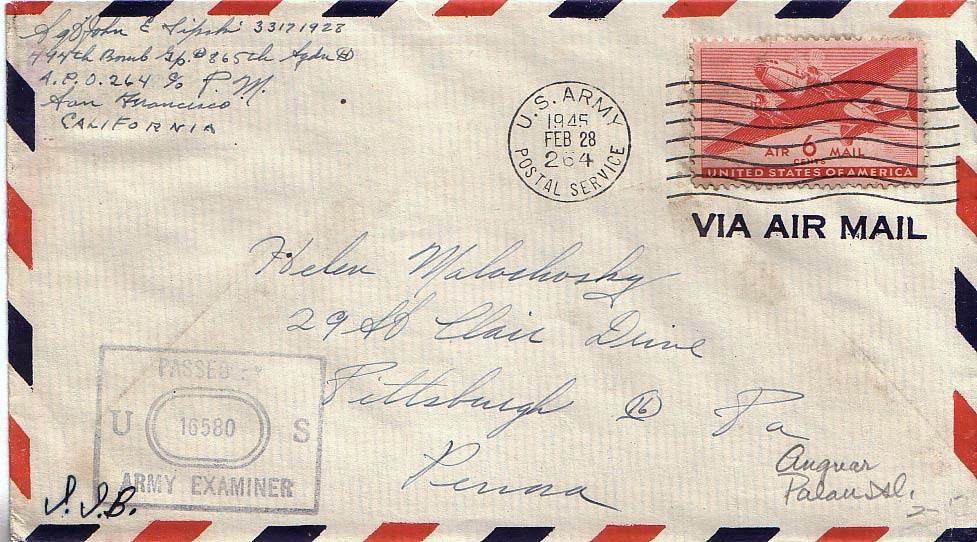 Sgt John E Lipski 33171928
494th Bomb Gp. 865th Sqdn
A.P.O. 264 c/o P.M.
San Francisco
CALIFORNIA
U.S. ARMY
1945
FEB 28
264
POSTAL SERVICE
AIR 6 MAIL
CENTS
UNITED STATES OF AMERICA
VIA AIR MAIL
Helen Malachosky
29 St Clair Drive
Pittsburgh 16 Pa
Penna
PASSED BY
U 16580 S
ARMY EXAMINER
Anguar
Palau Isl.